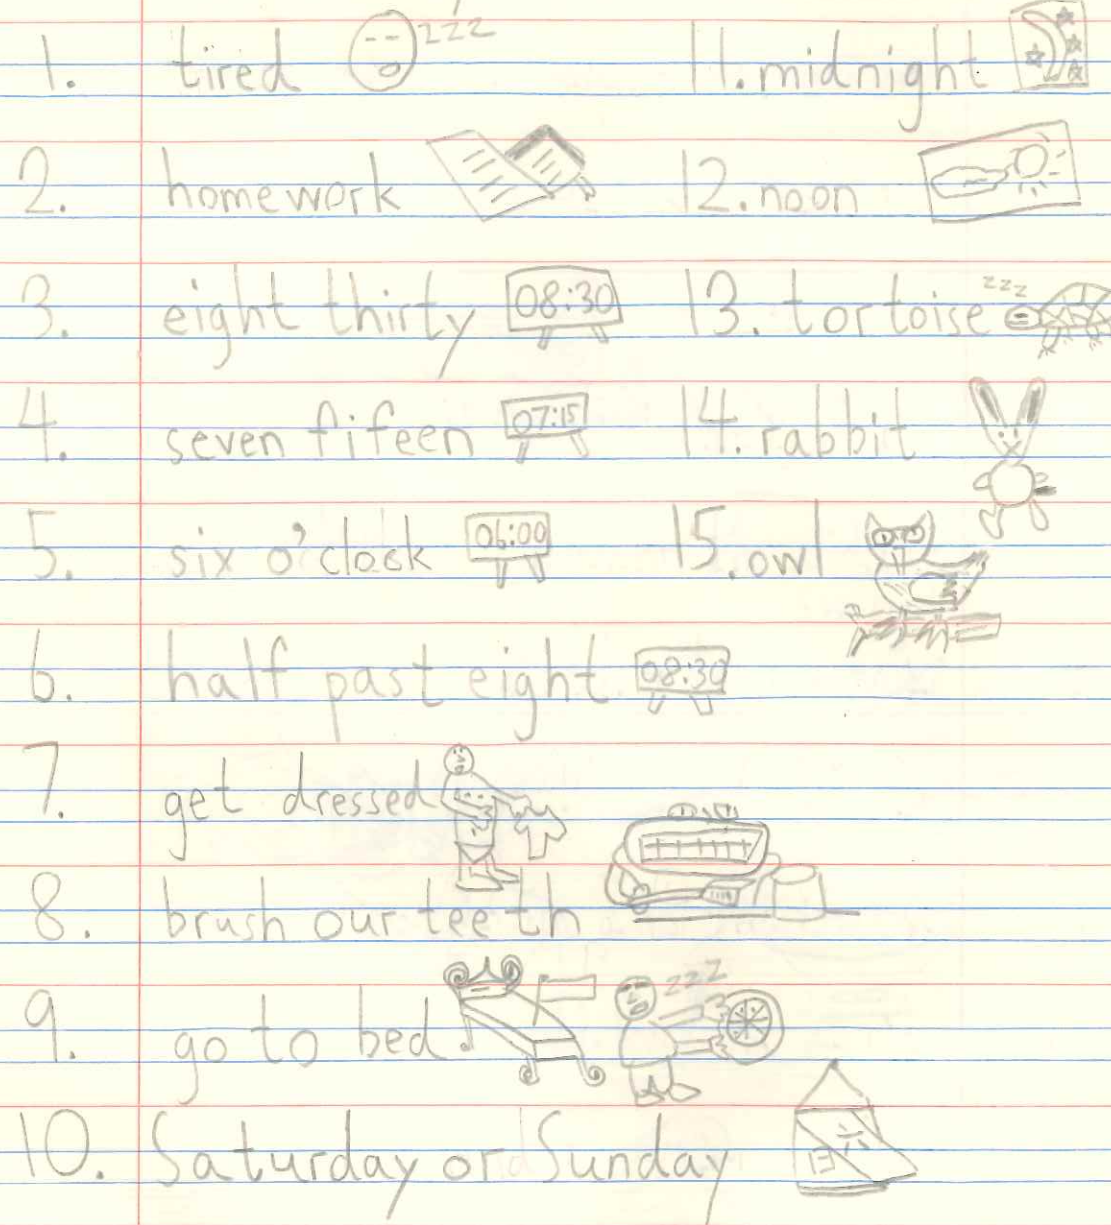 1. tired zzz
2. homework
3. eight thirty 08:30
4. seven fifeen 07:15
5. six o'clock 06:00
6. half past eight 08:30
7. get dressed
8. brush our teeth
9. go to bed zzz
10. Saturday or Sunday
11. midnight
12. noon
13. tortoise zzz
14. rabbit
15. owl